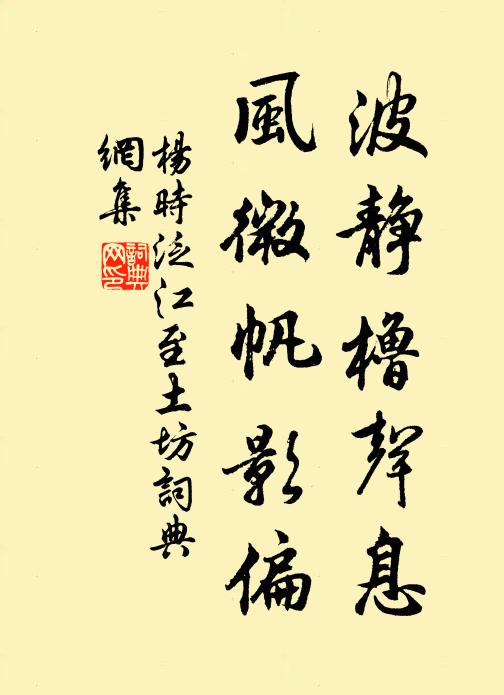 波靜櫓聲息
風微帆影偏
楊時泛江至土坊詞典
網集
詞典
网印